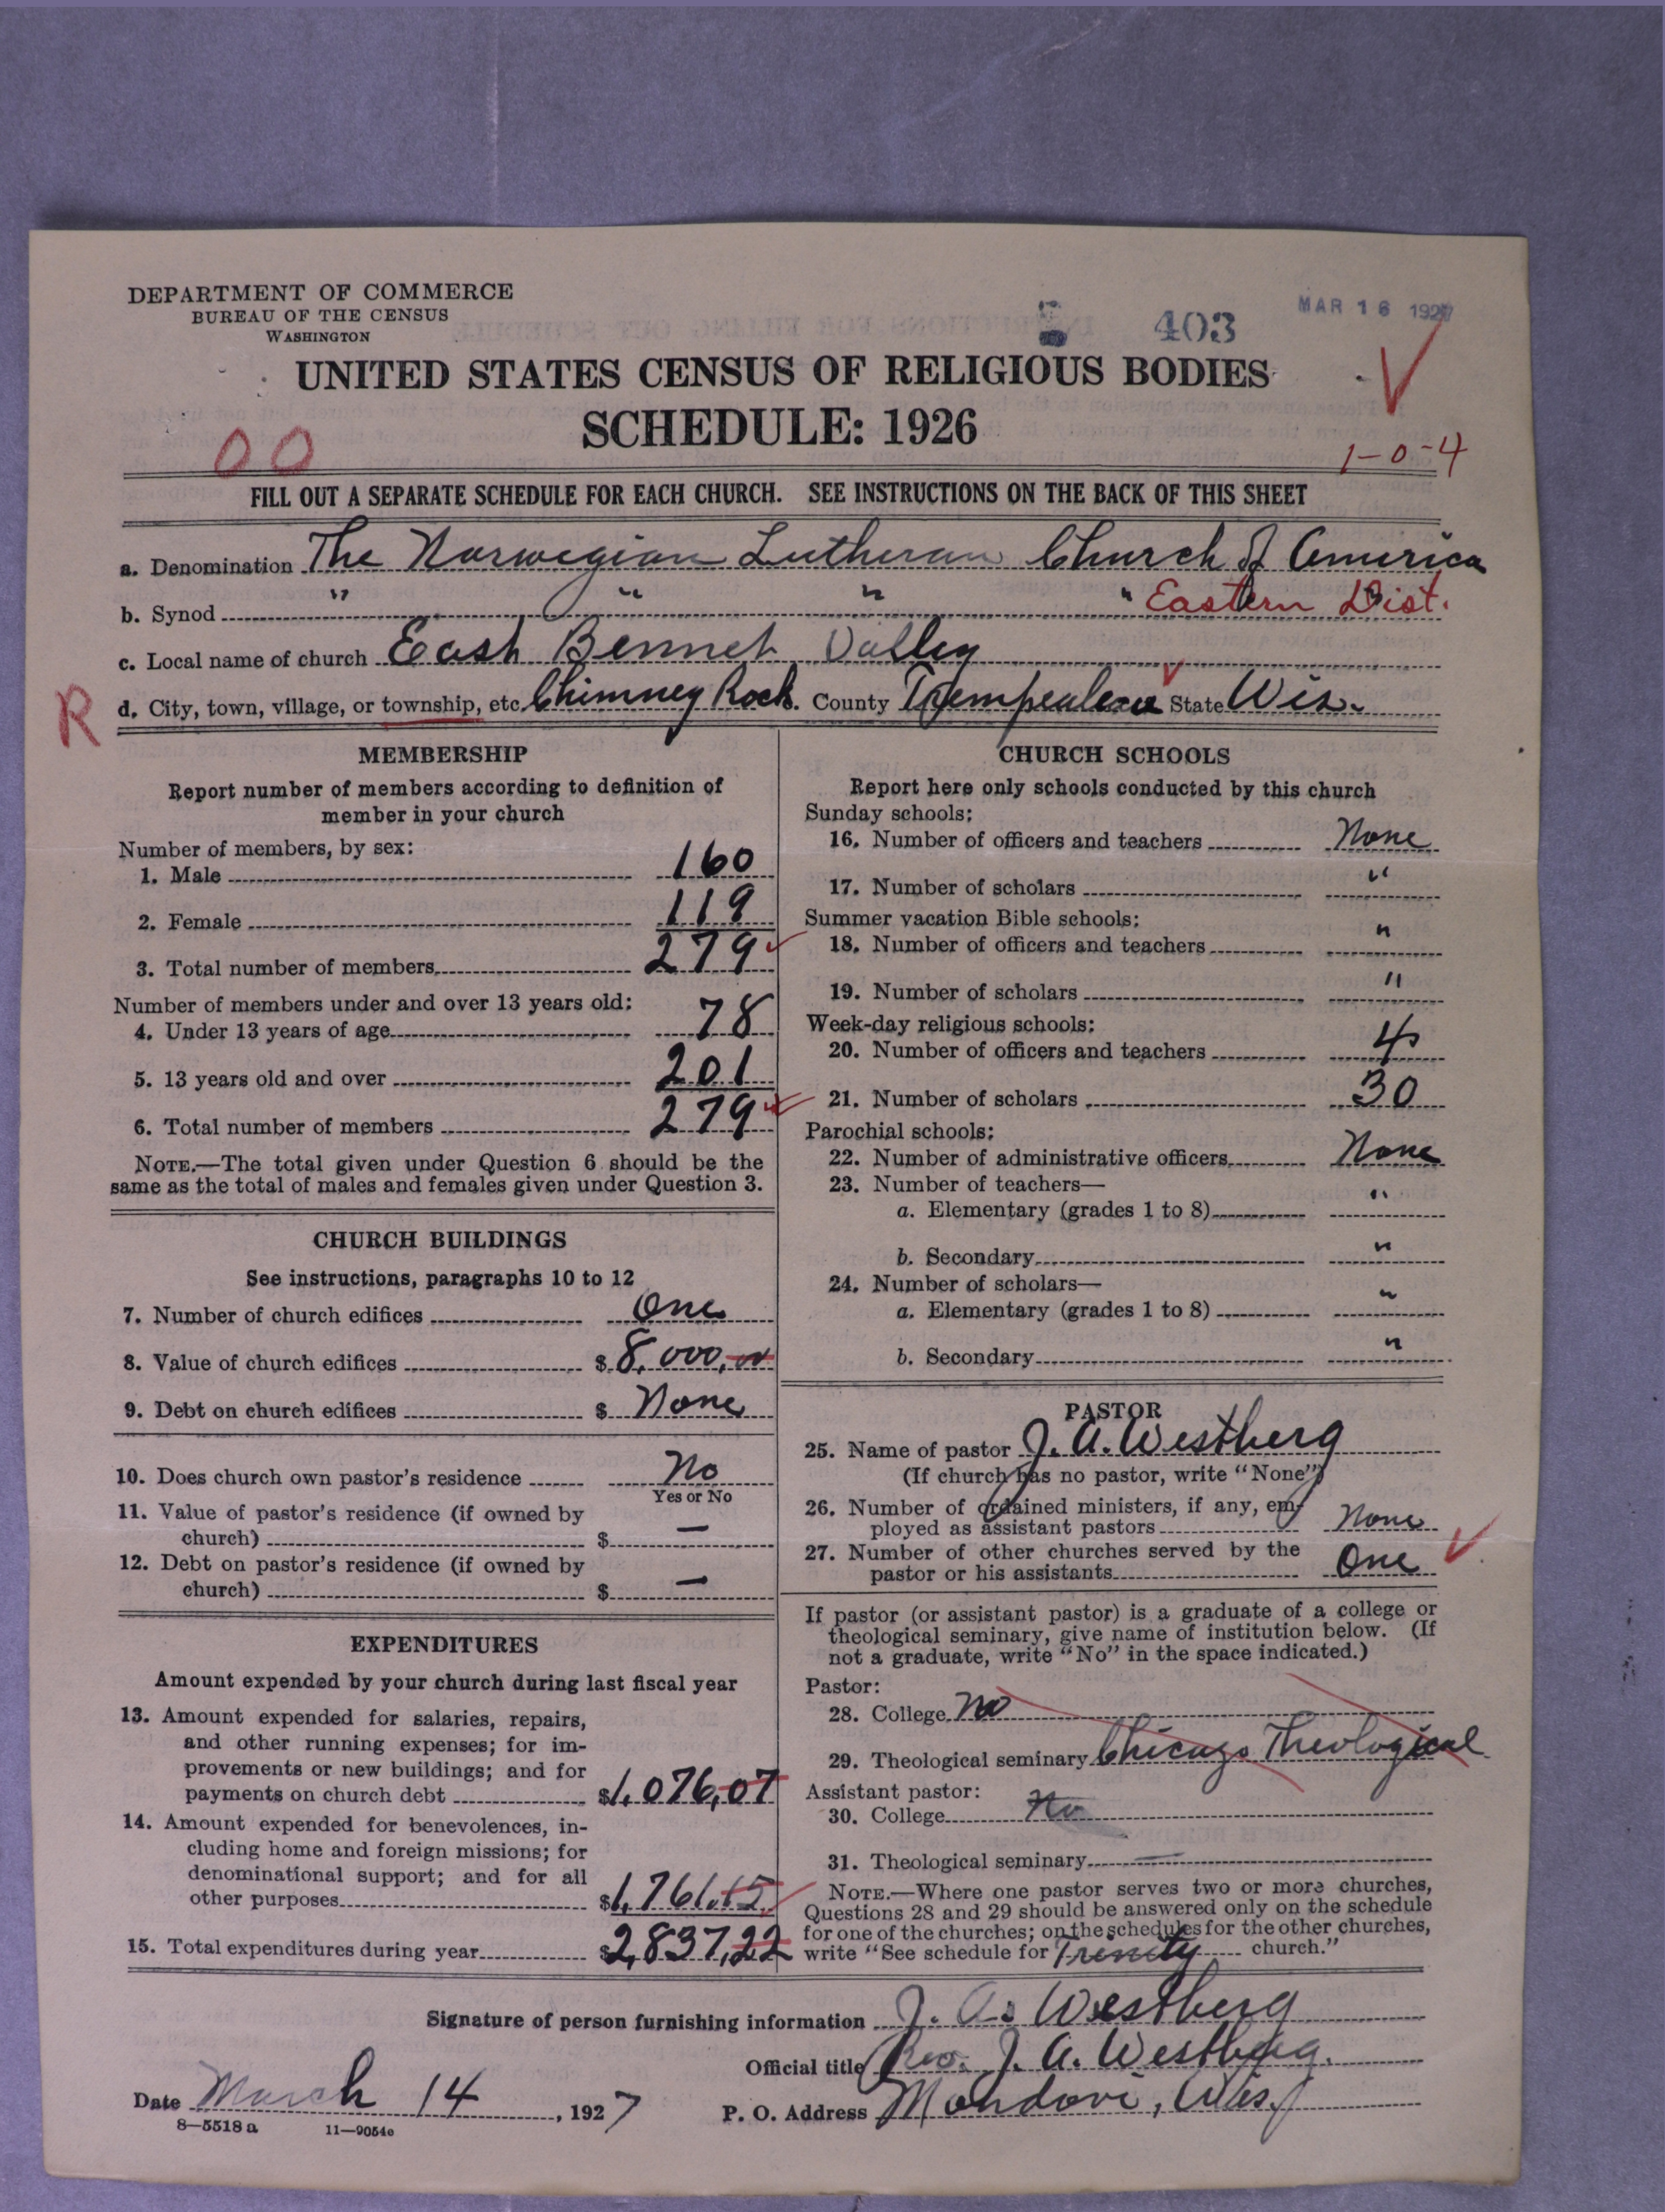 DEPARTMENT OF COMMERCE
BUREAU OF THE CENSUS
WASHINGTON
403
MAR 16 1927
UNITED STATES CENSUS OF RELIGIOUS BODIES
SCHEDULE: 1926
00
1-0-4
FILL OUT A SEPARATE SCHEDULE FOR EACH CHURCH. SEE INSTRUCTIONS ON THE BACK OF THIS SHEET
a. Denomination The Norwegian Lutheran Church of America
b. Synod " " " " Eastern Dist.
c. Local name of church East Bennet Valley
R d. City, town, village, or township, etc. Chimney Rock. County Trempealeau State Wis.
MEMBERSHIP
Report number of members according to definition of
member in your church
Number of members, by sex:
1. Male 160
2. Female 119
3. Total number of members 279
Number of members under and over 13 years old:
4. Under 13 years of age 78
5. 13 years old and over 201
6. Total number of members 279
NOTE.—The total given under Question 6 should be the
same as the total of males and females given under Question 3.
CHURCH BUILDINGS
See instructions, paragraphs 10 to 12
7. Number of church edifices One
8. Value of church edifices $ 8,000,00
9. Debt on church edifices $ None
10. Does church own pastor's residence No
Yes or No
11. Value of pastor's residence (if owned by
church) $ —
12. Debt on pastor's residence (if owned by
church) $ —
EXPENDITURES
Amount expended by your church during last fiscal year
13. Amount expended for salaries, repairs,
and other running expenses; for im-
provements or new buildings; and for
payments on church debt $1,076,07
14. Amount expended for benevolences, in-
cluding home and foreign missions; for
denominational support; and for all
other purposes $1,761.15
15. Total expenditures during year $2,837,22
CHURCH SCHOOLS
Report here only schools conducted by this church
Sunday schools:
16. Number of officers and teachers None
17. Number of scholars "
Summer vacation Bible schools:
18. Number of officers and teachers "
19. Number of scholars "
Week-day religious schools:
20. Number of officers and teachers 4
21. Number of scholars 30
Parochial schools:
22. Number of administrative officers None
23. Number of teachers—
a. Elementary (grades 1 to 8) "
b. Secondary "
24. Number of scholars—
a. Elementary (grades 1 to 8) "
b. Secondary "
PASTOR
25. Name of pastor J. A. Westberg
(If church has no pastor, write "None")
26. Number of ordained ministers, if any, em-
ployed as assistant pastors None
27. Number of other churches served by the
pastor or his assistants One
If pastor (or assistant pastor) is a graduate of a college or
theological seminary, give name of institution below. (If
not a graduate, write "No" in the space indicated.)
Pastor:
28. College No
29. Theological seminary Chicago Theological
Assistant pastor:
30. College No
31. Theological seminary —
NOTE.—Where one pastor serves two or more churches,
Questions 28 and 29 should be answered only on the schedule
for one of the churches; on the schedules for the other churches,
write "See schedule for Trinity church."
Signature of person furnishing information J. A. Westberg
Official title Rev. J. A. Westberg.
Date March 14, 1927 P. O. Address Mondovi, Wis.
8—5518 a 11—9054c